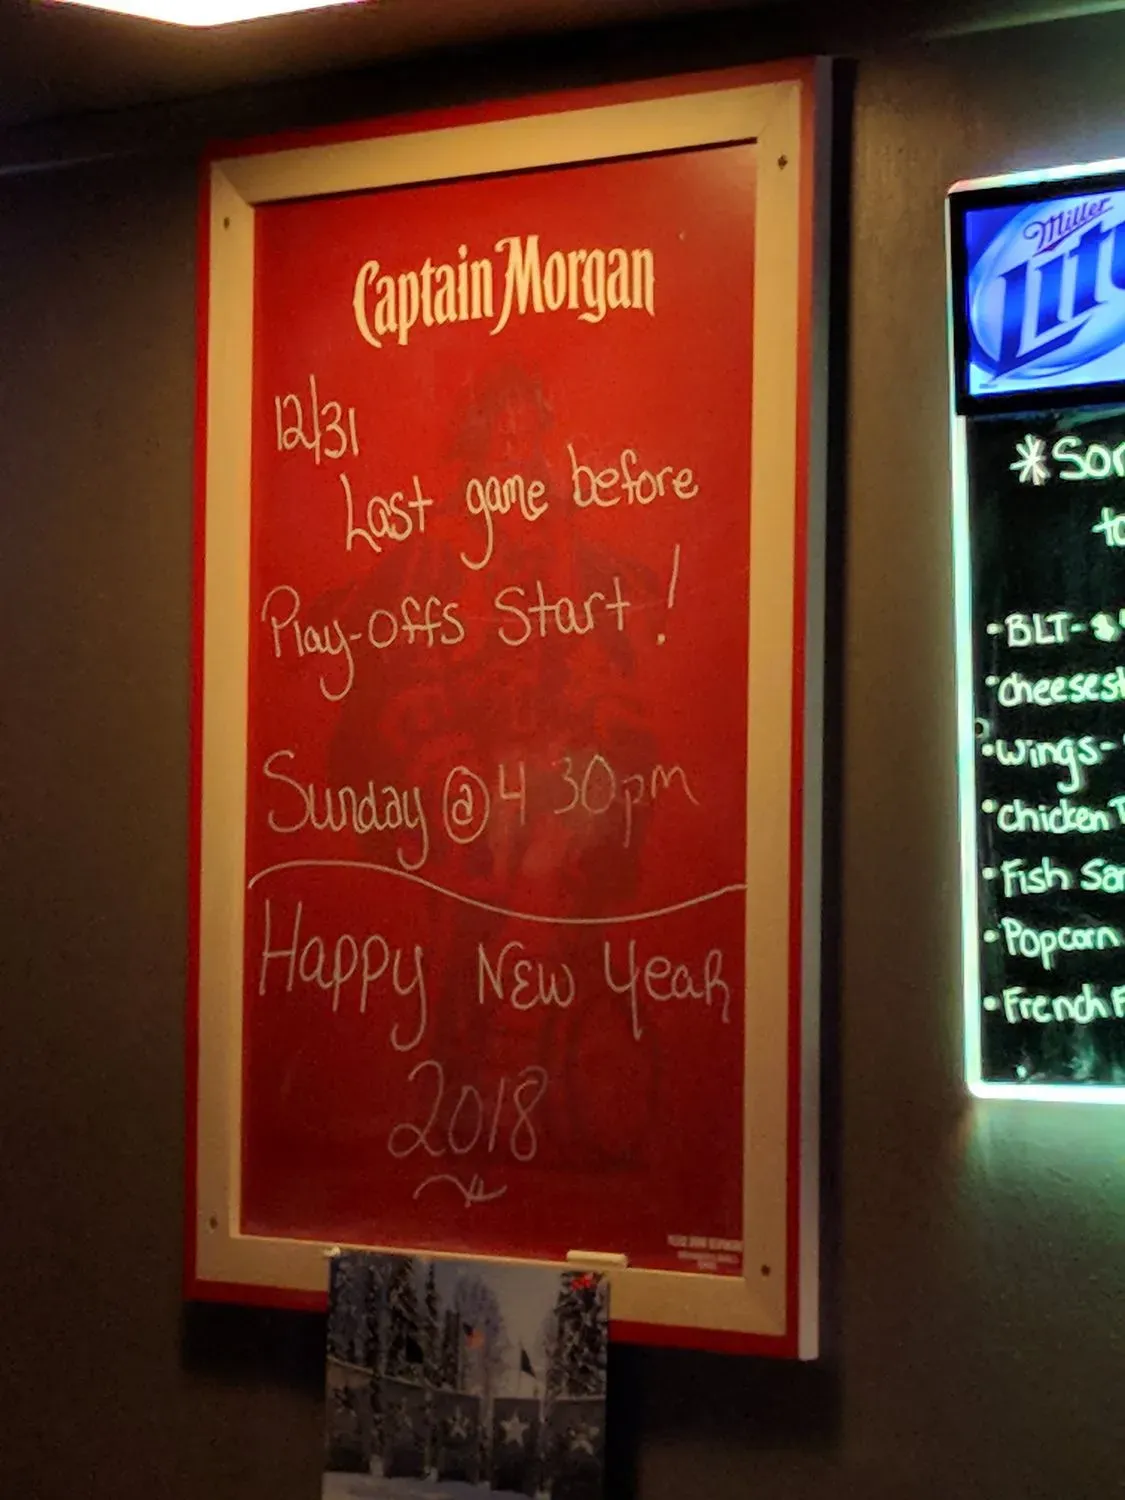 Captain Morgan
12/31
Last game before
Play-offs Start!
Sunday @ 4 30pm
Happy New Year
2018
Miller
Lit
*Sor
to
•BLT-$
•cheesest
•Wings-
•Chicken T
•Fish San
•Popcorn
•French F